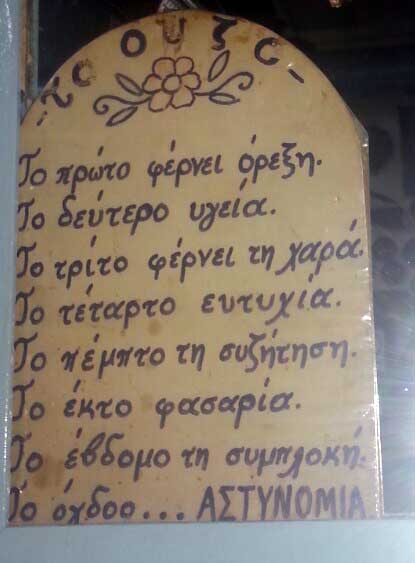 Το ουζο
Το πρώτο φέρνει όρεξη.
Το δεύτερο υγεία.
Το τρίτο φέρνει τη χαρά.
Το τέταρτο ευτυχία.
Το πέμπτο τη συζήτηση.
Το έκτο φασαρία.
Το έβδομο τη συμπλοκή.
Το όχδοο... ΑΣΤΥΝΟΜΙΑ